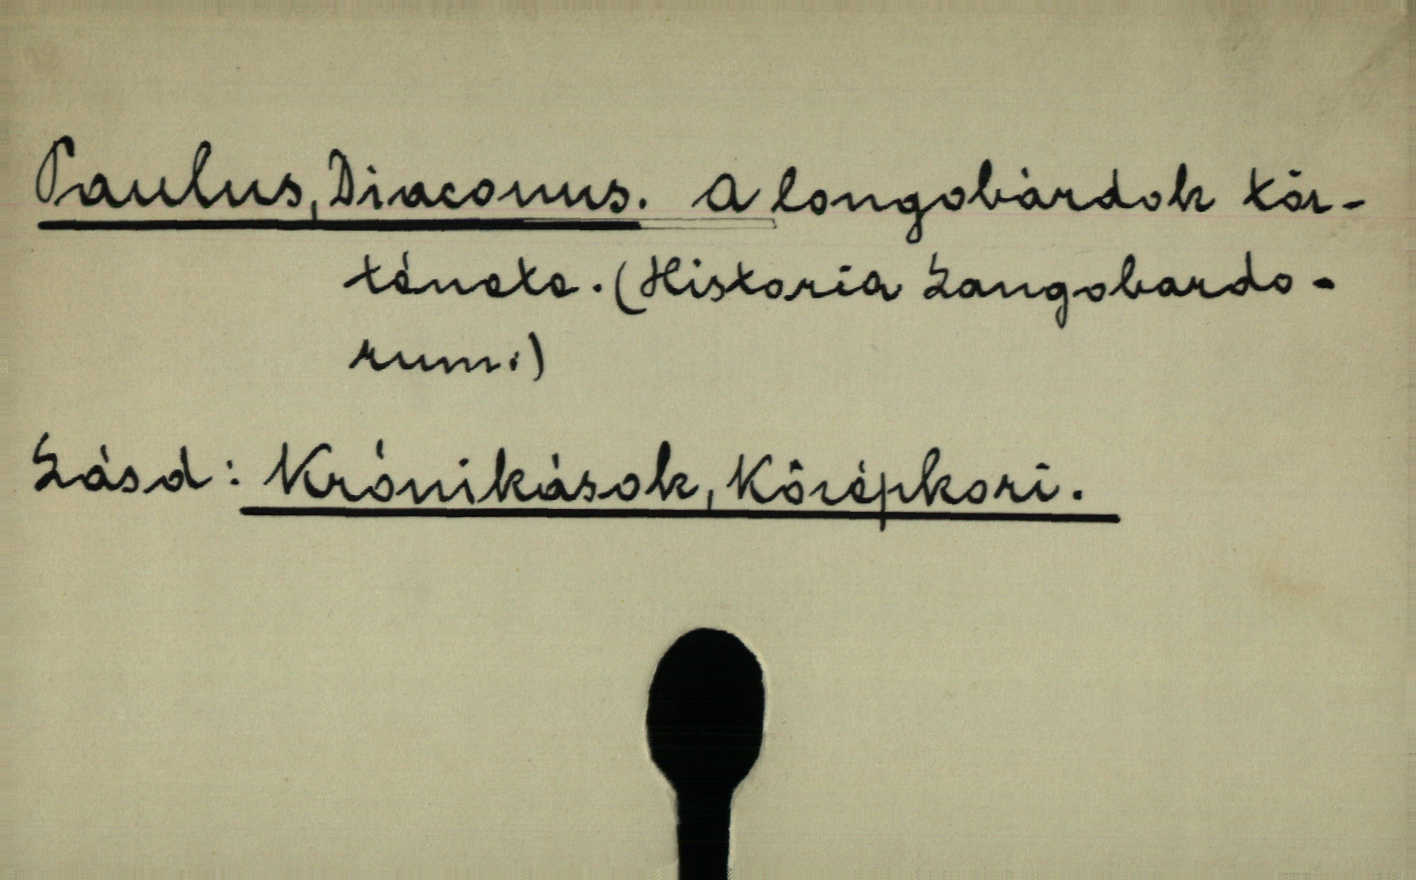 Paulus, Diaconus. A longobárdok tör-
ténete. (Historia Langobardo-
rum.)
Lásd: Krónikások, Középkori.